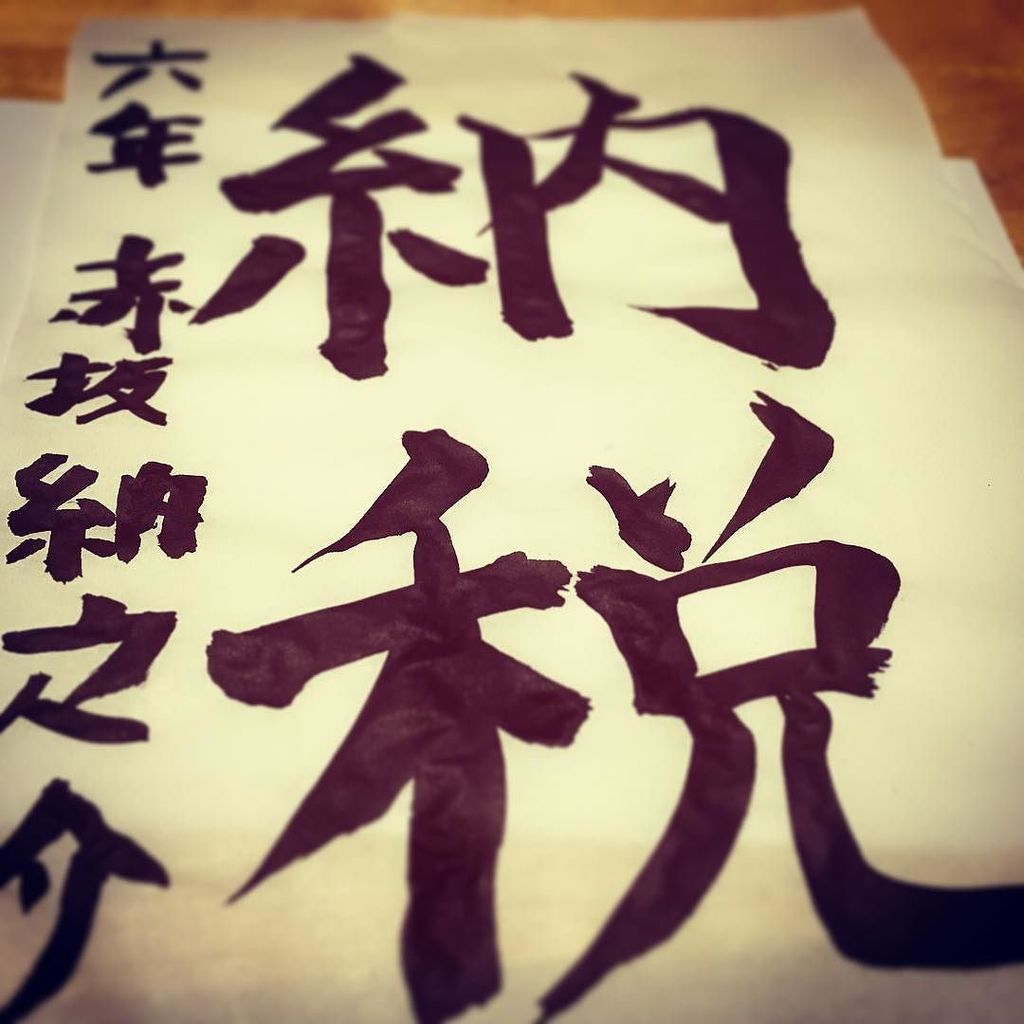 納税
六年 赤坂 納之介